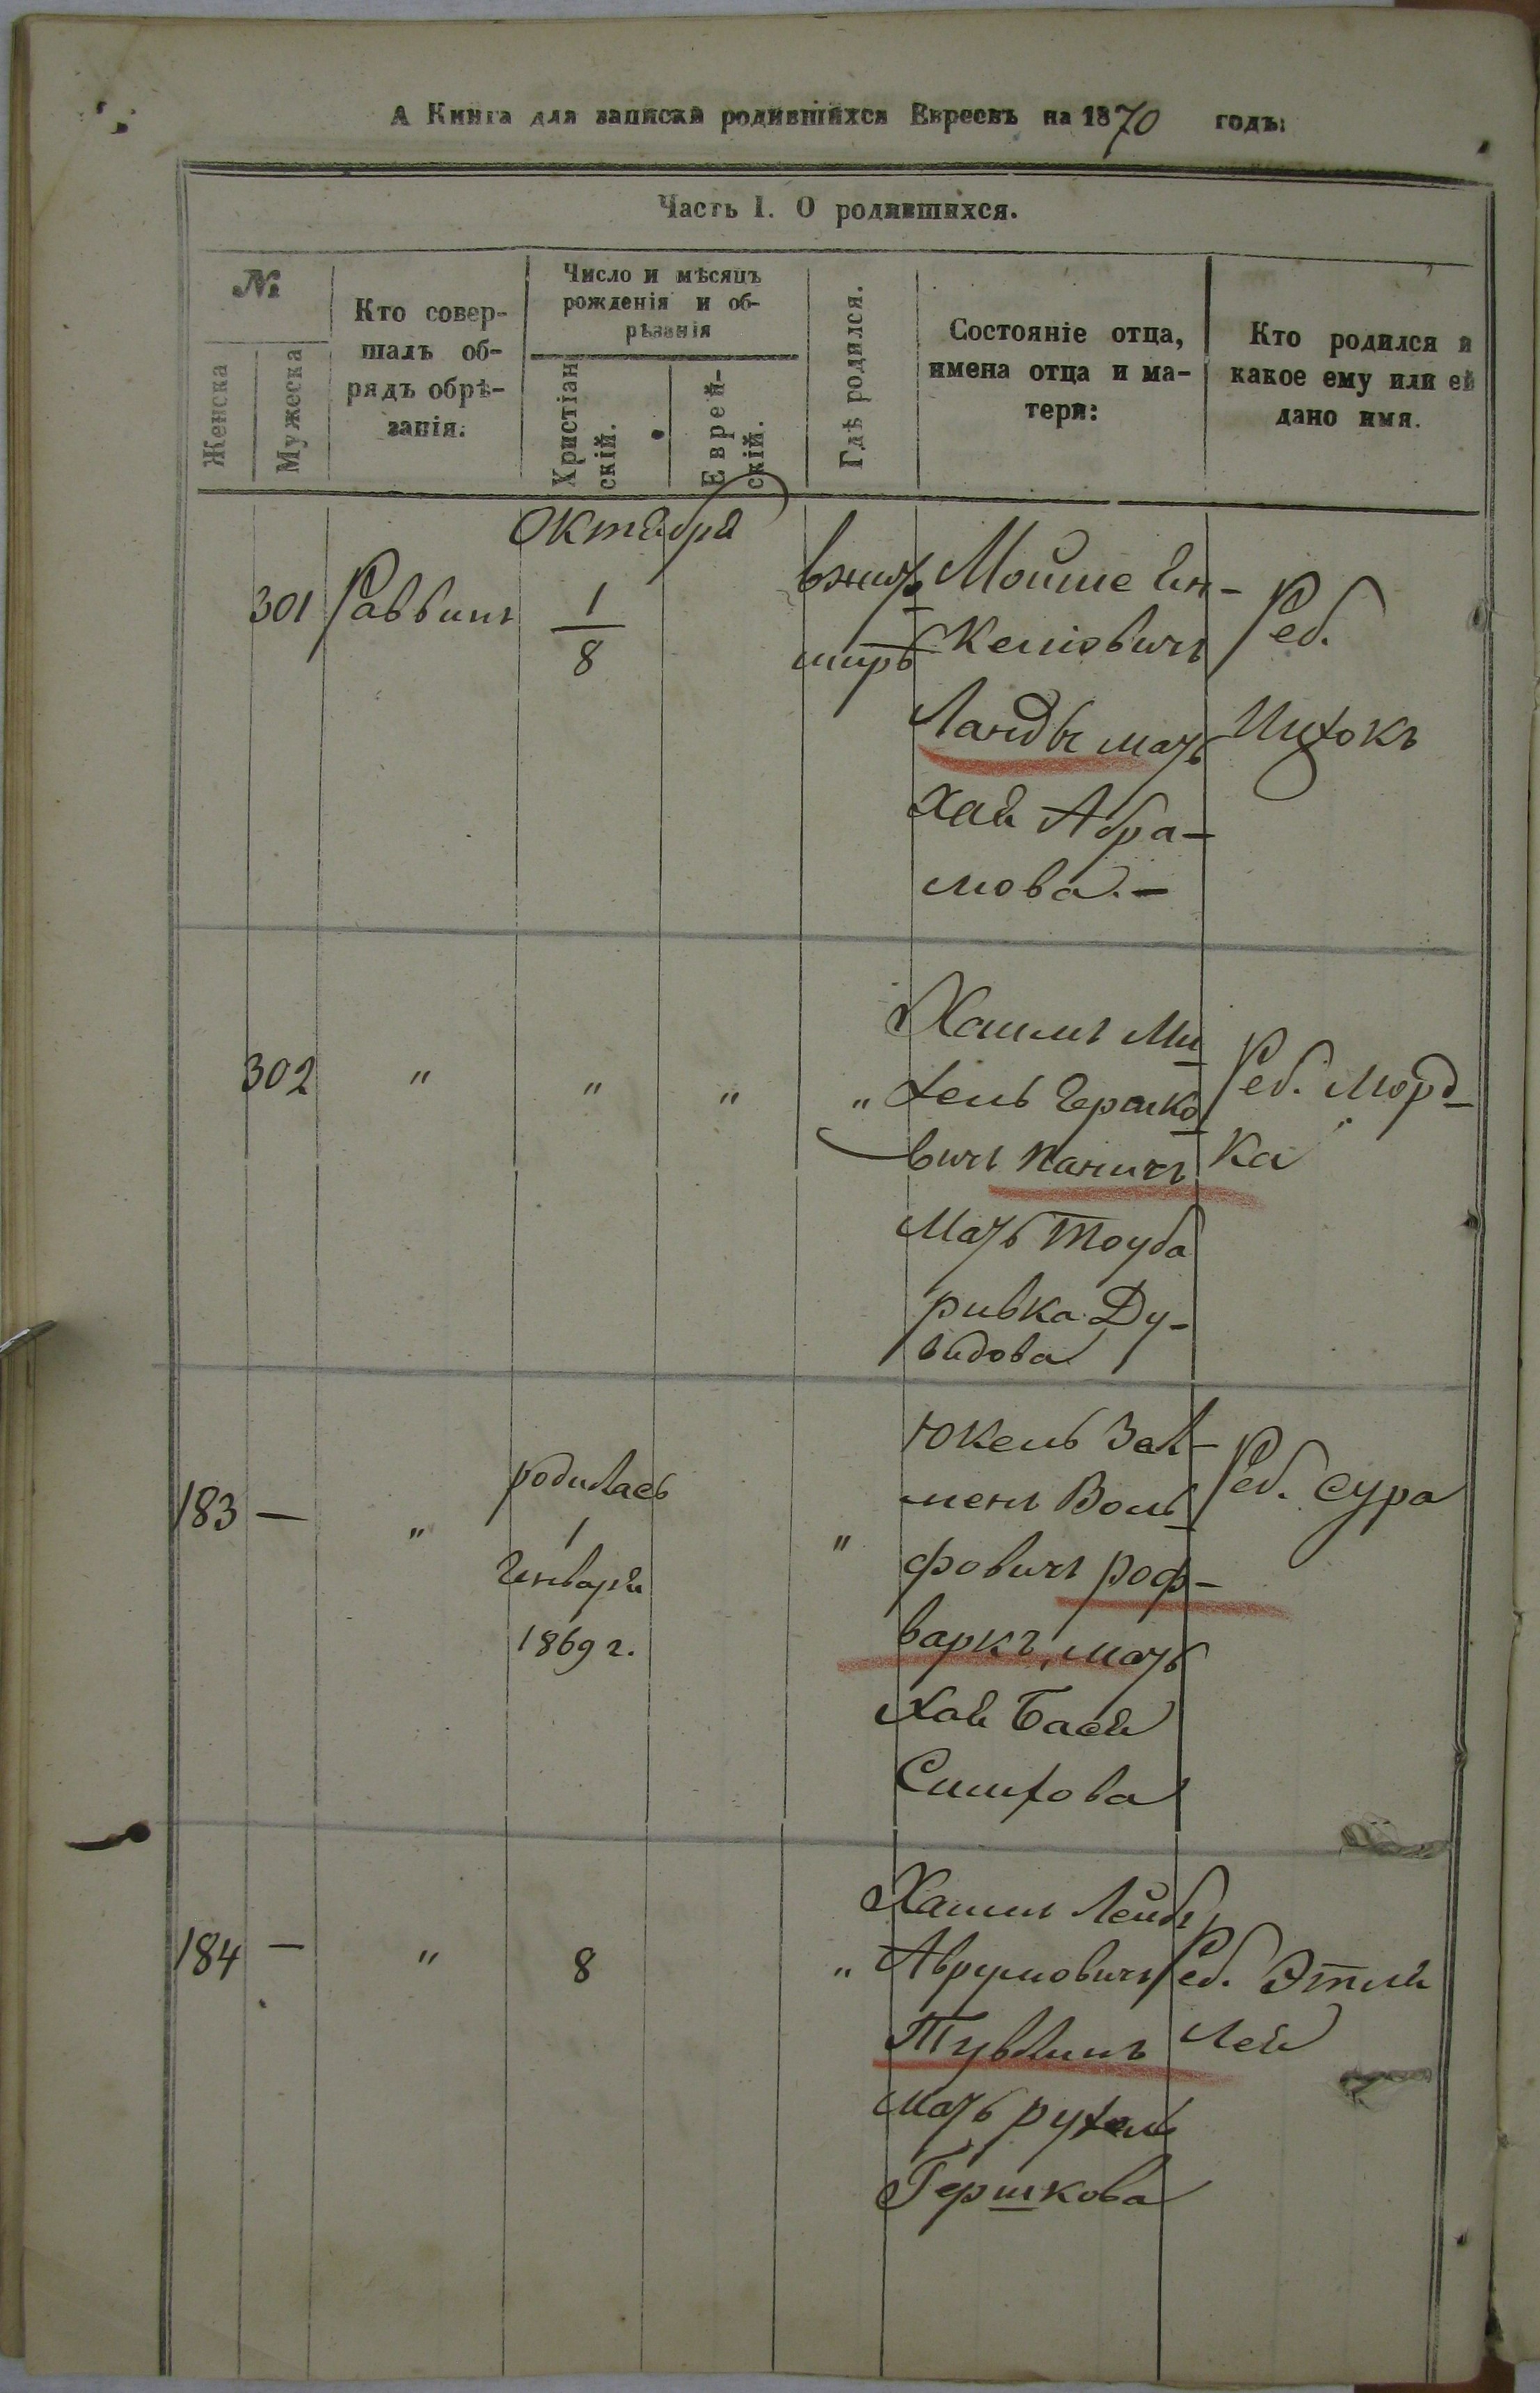 А Книга для записки родившихся Евреевъ на 1870 годъ:
Часть I. О родившихся.
№
Женска
Мужеска
Кто совер-
шалъ об-
рядъ обрѣ-
занія:
Число и мѣсяцъ
рожденія и об-
рѣзанія
Христіан
скій.
Еврей-
скій.
Гдѣ родился.
Состояніе отца,
имена отца и ма-
тери:
Кто родился и
какое ему или ей
дано имя.
Октября
301 Раввинъ 1/8
Мошке Ян-
келіовичъ
Ланды мать
Хая Абра-
мова. —
Реб.
Ицхокъ
302 " " " "
Хаимъ Ми
хель Гершко
вичъ Каничъ
Мать Тоуба
ривка Ду-
видова
Реб. Морд-
ка
183 — "
родилась
1
Января
1869 г.
"
Юкель Зал-
менъ Воль
фовичъ роф-
варкъ, мать
Хая Бася
Симхова
Реб. сура
184 — " 8 "
Хаимъ Лейбъ
Аврумовичъ
Тувлинъ
мать рухель
Гершкова
Реб. Этля
Лея